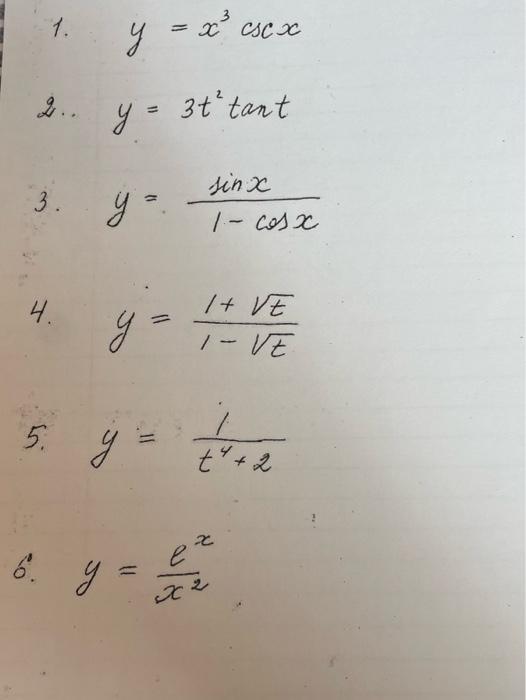 1. y = x³ csc x
2.. y = 3t² tan t
3. y = sin x / 1 - cos x
4. y = 1 + √t / 1 - √t
5. y = 1 / t⁴ + 2
6. y = eˣ / x²